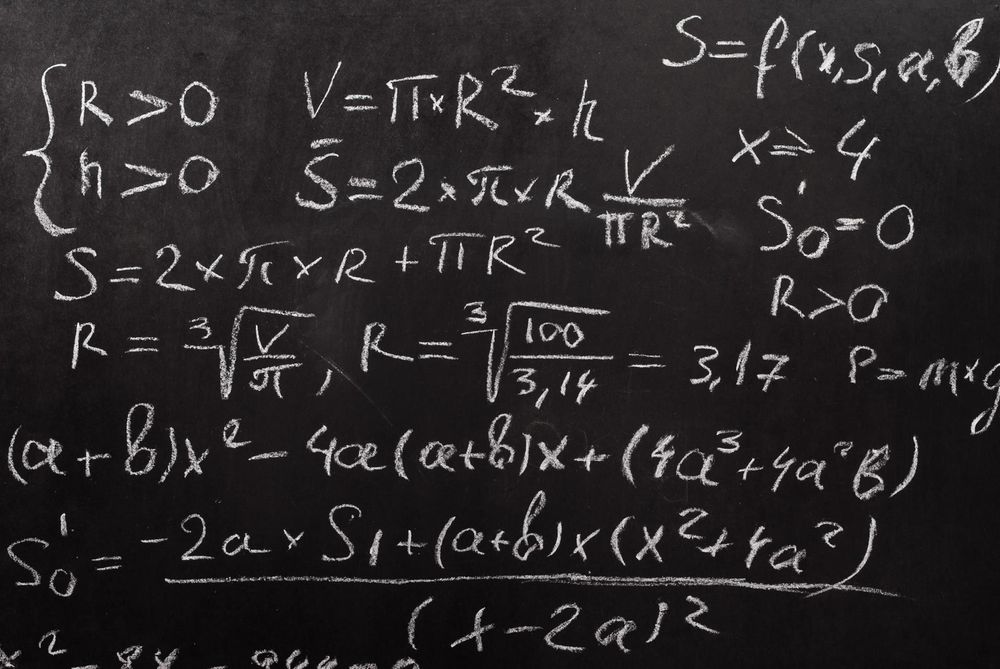 S=f(x,S,a,b)
{R>0 V=π×R²×h
x⩾4
h>0 S̄=2×π×R V/πR²
S'₀=0
S=2×π×R+πR²
R>0
R=∛(V/π), R=∛(100/3,14)=3,17 P=m×g
(a+b)x²-4a(a+b)x+(4a³+4a²b)
S'₀=(-2a×S₁+(a+b)×(x²+4a²))/(x-2a)²